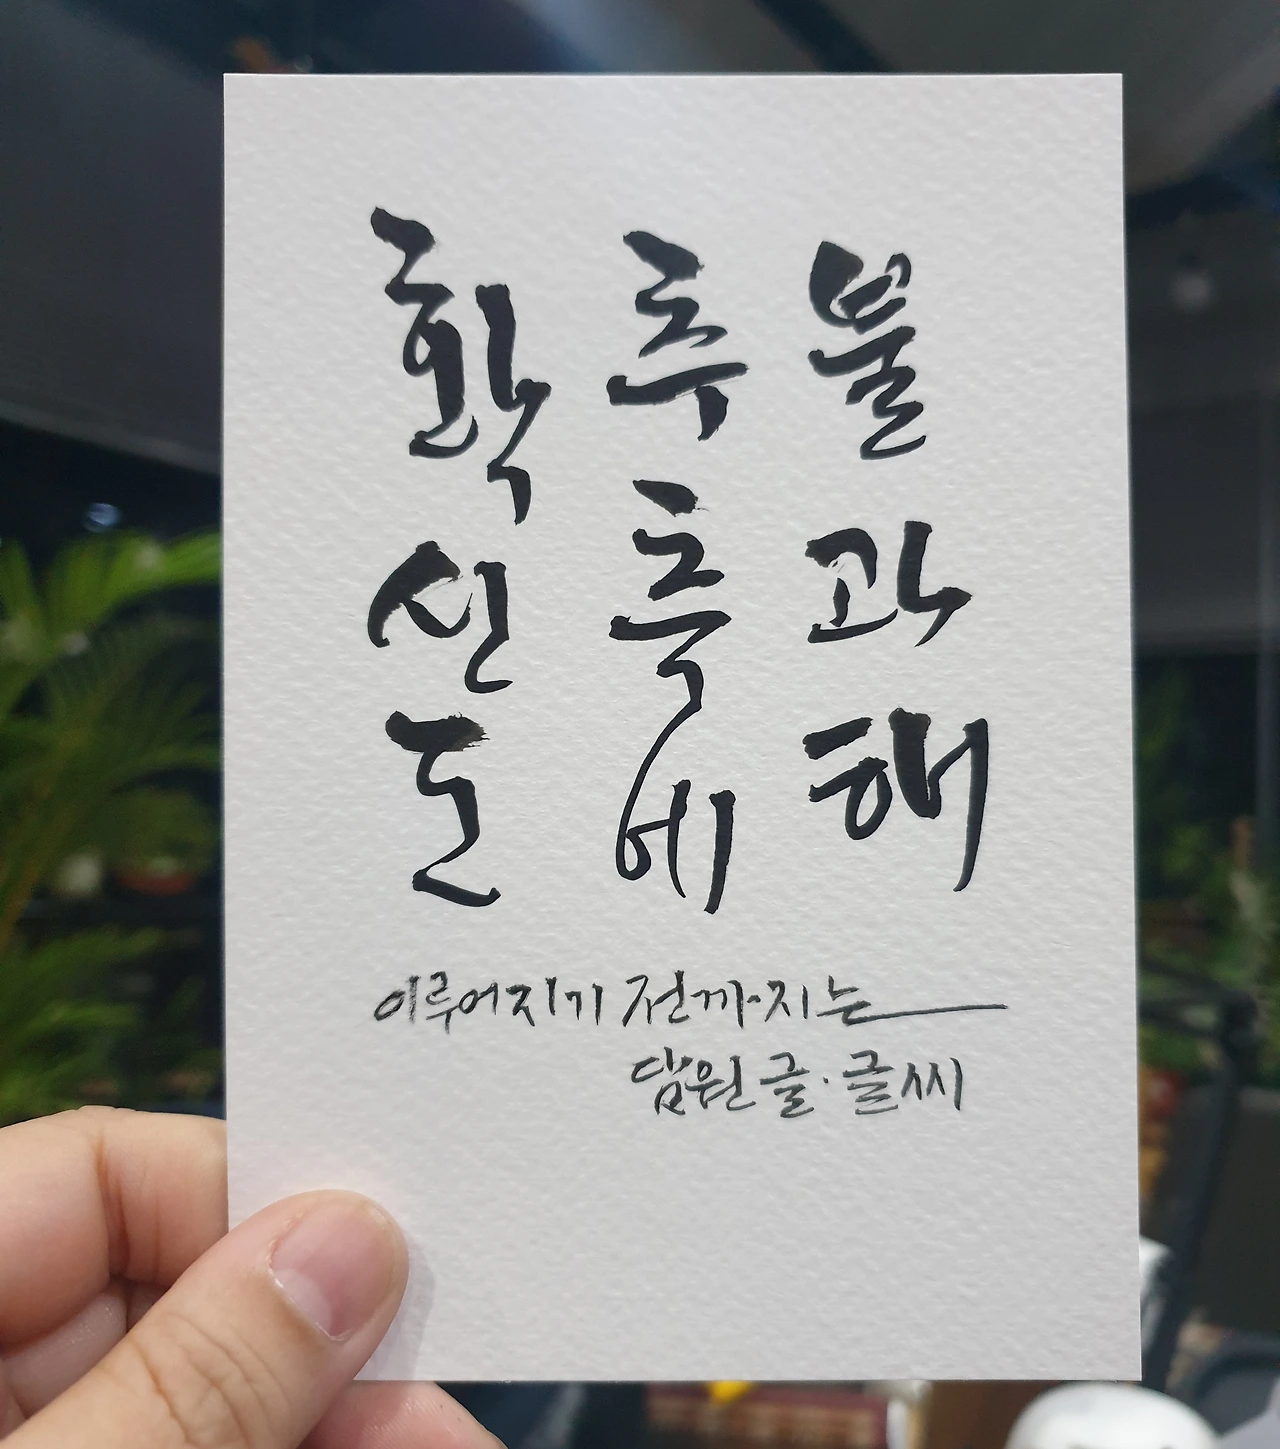 확신도
추측에
불과해
이루어지기 전까지는
담원 글·글씨